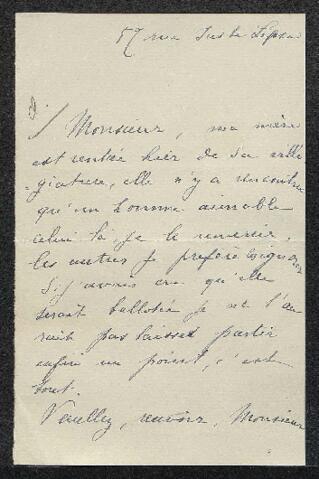 57 rue Juste Lipse
Monsieur, ma mère
est rentrée hier de sa ville
giature, elle n'y a rencontré
qu'un homme aimable
celui là, je le remercie,
les autres je préfère
si j'avais cru qu'elle
serait ballotée je ne l'au
rait pas laissée partir
enfin un point, c'est
tout.
Veuillez, recevoir, Monsieur